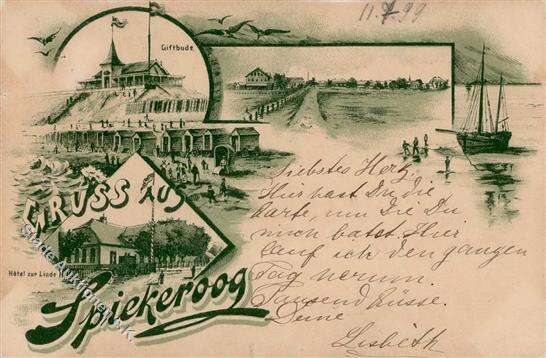 11.7.99
Giftbude
GRUSS AUS
Hôtel zur Linde
Spiekeroog
Liebstes Herz,
Hier hast Du die
Karte, um die Du
mich batst. Hier
lauf ich den ganzen
Tag herum.
Tausend Küsse.
Deine
Lisbeth